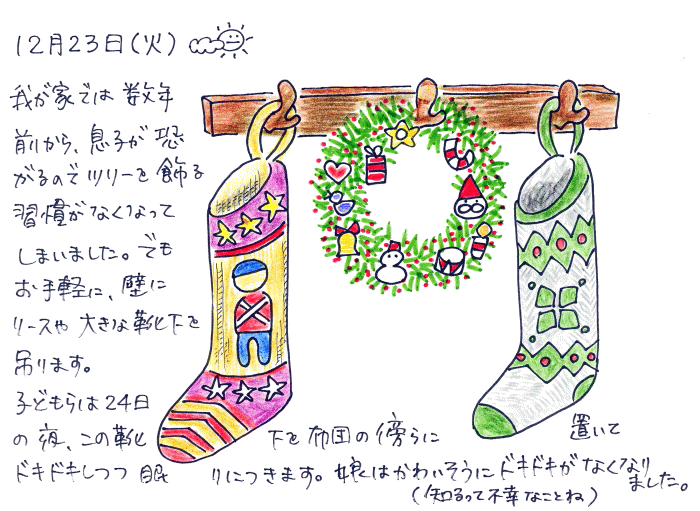 12月23日(火)
我が家では数年
前から、息子が恐
がるのでツリーを飾る
習慣がなくなって
しまいました。でも
お手軽に、壁に
リースや大きな靴下を
吊ります。
子どもらは24日
の夜、この靴下を布団の傍らに置いて
ドキドキしつつ眠りにつきます。娘はかわいそうにドキドキがなくなりました。
(知るって不幸なことね)